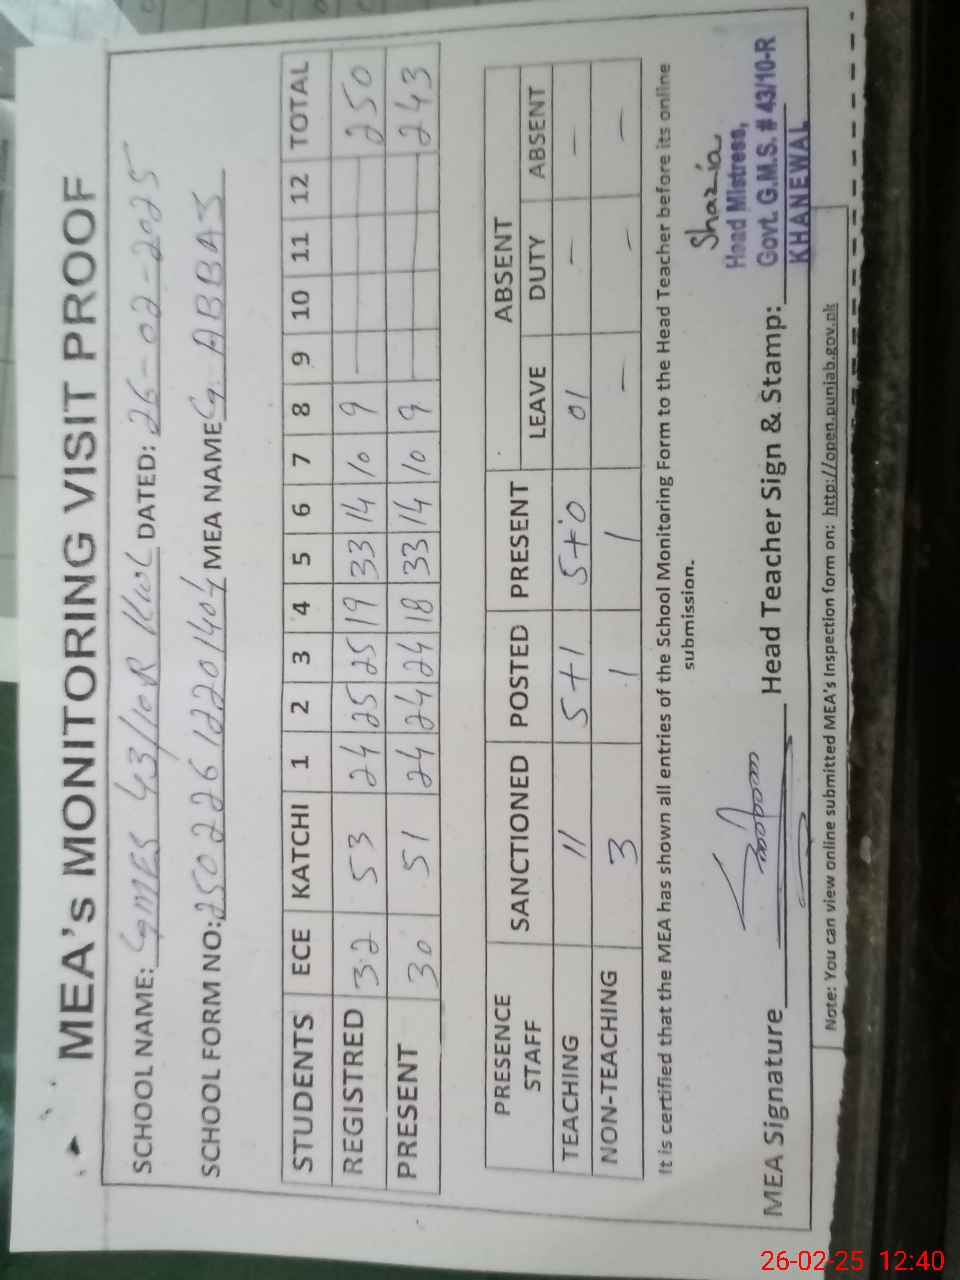 MEA's MONITORING VISIT PROOF
SCHOOL NAME: GMES 43/10R KWL DATED: 26-02-2025
SCHOOL FORM NO: 25022612201404 MEA NAME G. ABBAS
STUDENTS ECE KATCHI 1 2 3 4 5 6 7 8 9 10 11 12 TOTAL
REGISTRED 32 53 24 25 25 19 33 14 10 9 — — — — 250
PRESENT 30 51 24 24 24 18 33 14 10 9 — — — — 243
PRESENCE STAFF SANCTIONED POSTED PRESENT ABSENT
LEAVE DUTY ABSENT
TEACHING 11 5+1 5+0 01 — —
NON-TEACHING 3 1 1 — — —
It is certified that the MEA has shown all entries of the School Monitoring Form to the Head Teacher before its online
submission.
Shazia
Head Mistress,
Govt. G.M.S. # 43/10-R
KHANEWAL
MEA Signature Head Teacher Sign & Stamp:
Note: You can view online submitted MEA's Inspection form on: http://open.punjab.gov.pk
26-02-25 12:40